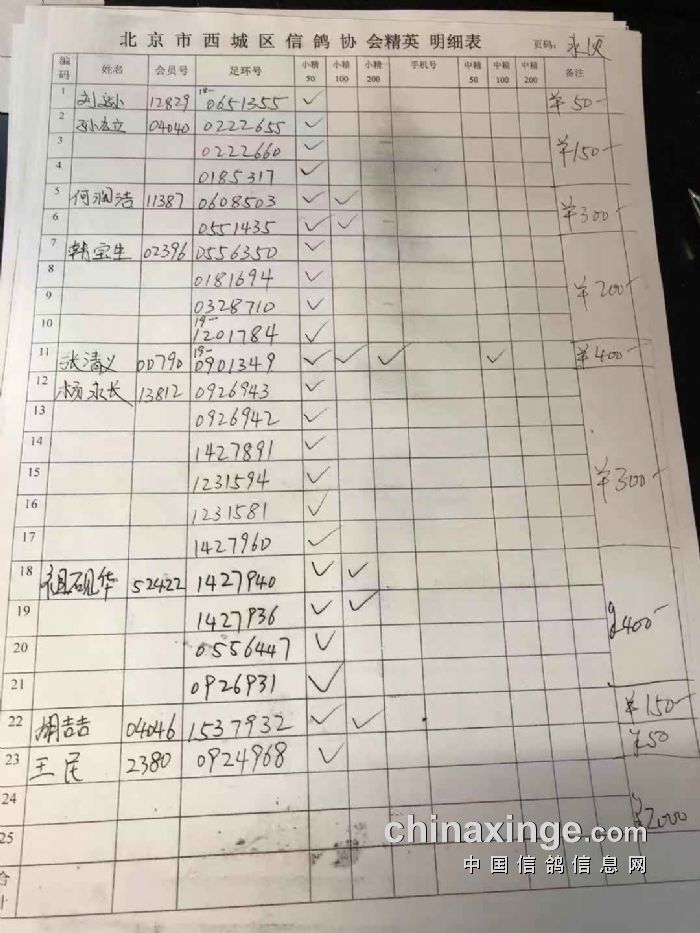 北京市西城区信鸽协会精英 明细表 页码:
编码 姓名 会员号 足环号 小精50 小精100 小精200 手机号 中精50 中精100 中精200 备注
1 12829 19- 0651355 ✓ ¥50-
2 孙立 04040 0222655 ✓
3 0222660 ✓ ¥150-
4 0185317 ✓
5 何润洁 11387 0608503 ✓ ✓
6 0551435 ✓ ✓ ¥300-
7 韩宝生 02396 0556350 ✓
8 0181694 ✓
9 0328710 ✓ ¥200-
10 19- 1201784 ✓
11 张清义 00790 19- 0901349 ✓ ✓ ✓ ✓ ¥400-
12 杨永长 13812 0926943 ✓
13 0926942 ✓
14 1427891 ✓
15 1231594 ✓ ¥300-
16 1231581 ✓
17 1427960 ✓
18 祖砚华 52422 1427940 ✓ ✓
19 1427936 ✓ ✓
20 0556447 ✓ ¥400-
21 0926931 ✓
22 胡喆 04046 1537932 ✓ ✓ ¥150-
23 王民 2380 0924968 ✓ ¥50
24
25 ¥2000
合计
chinaxinge.com
中国信鸽信息网